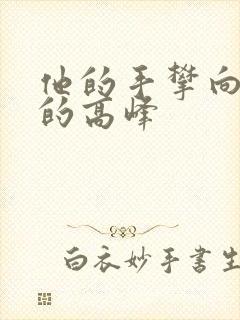 他的手攀向
的高峰
白衣妙手书生